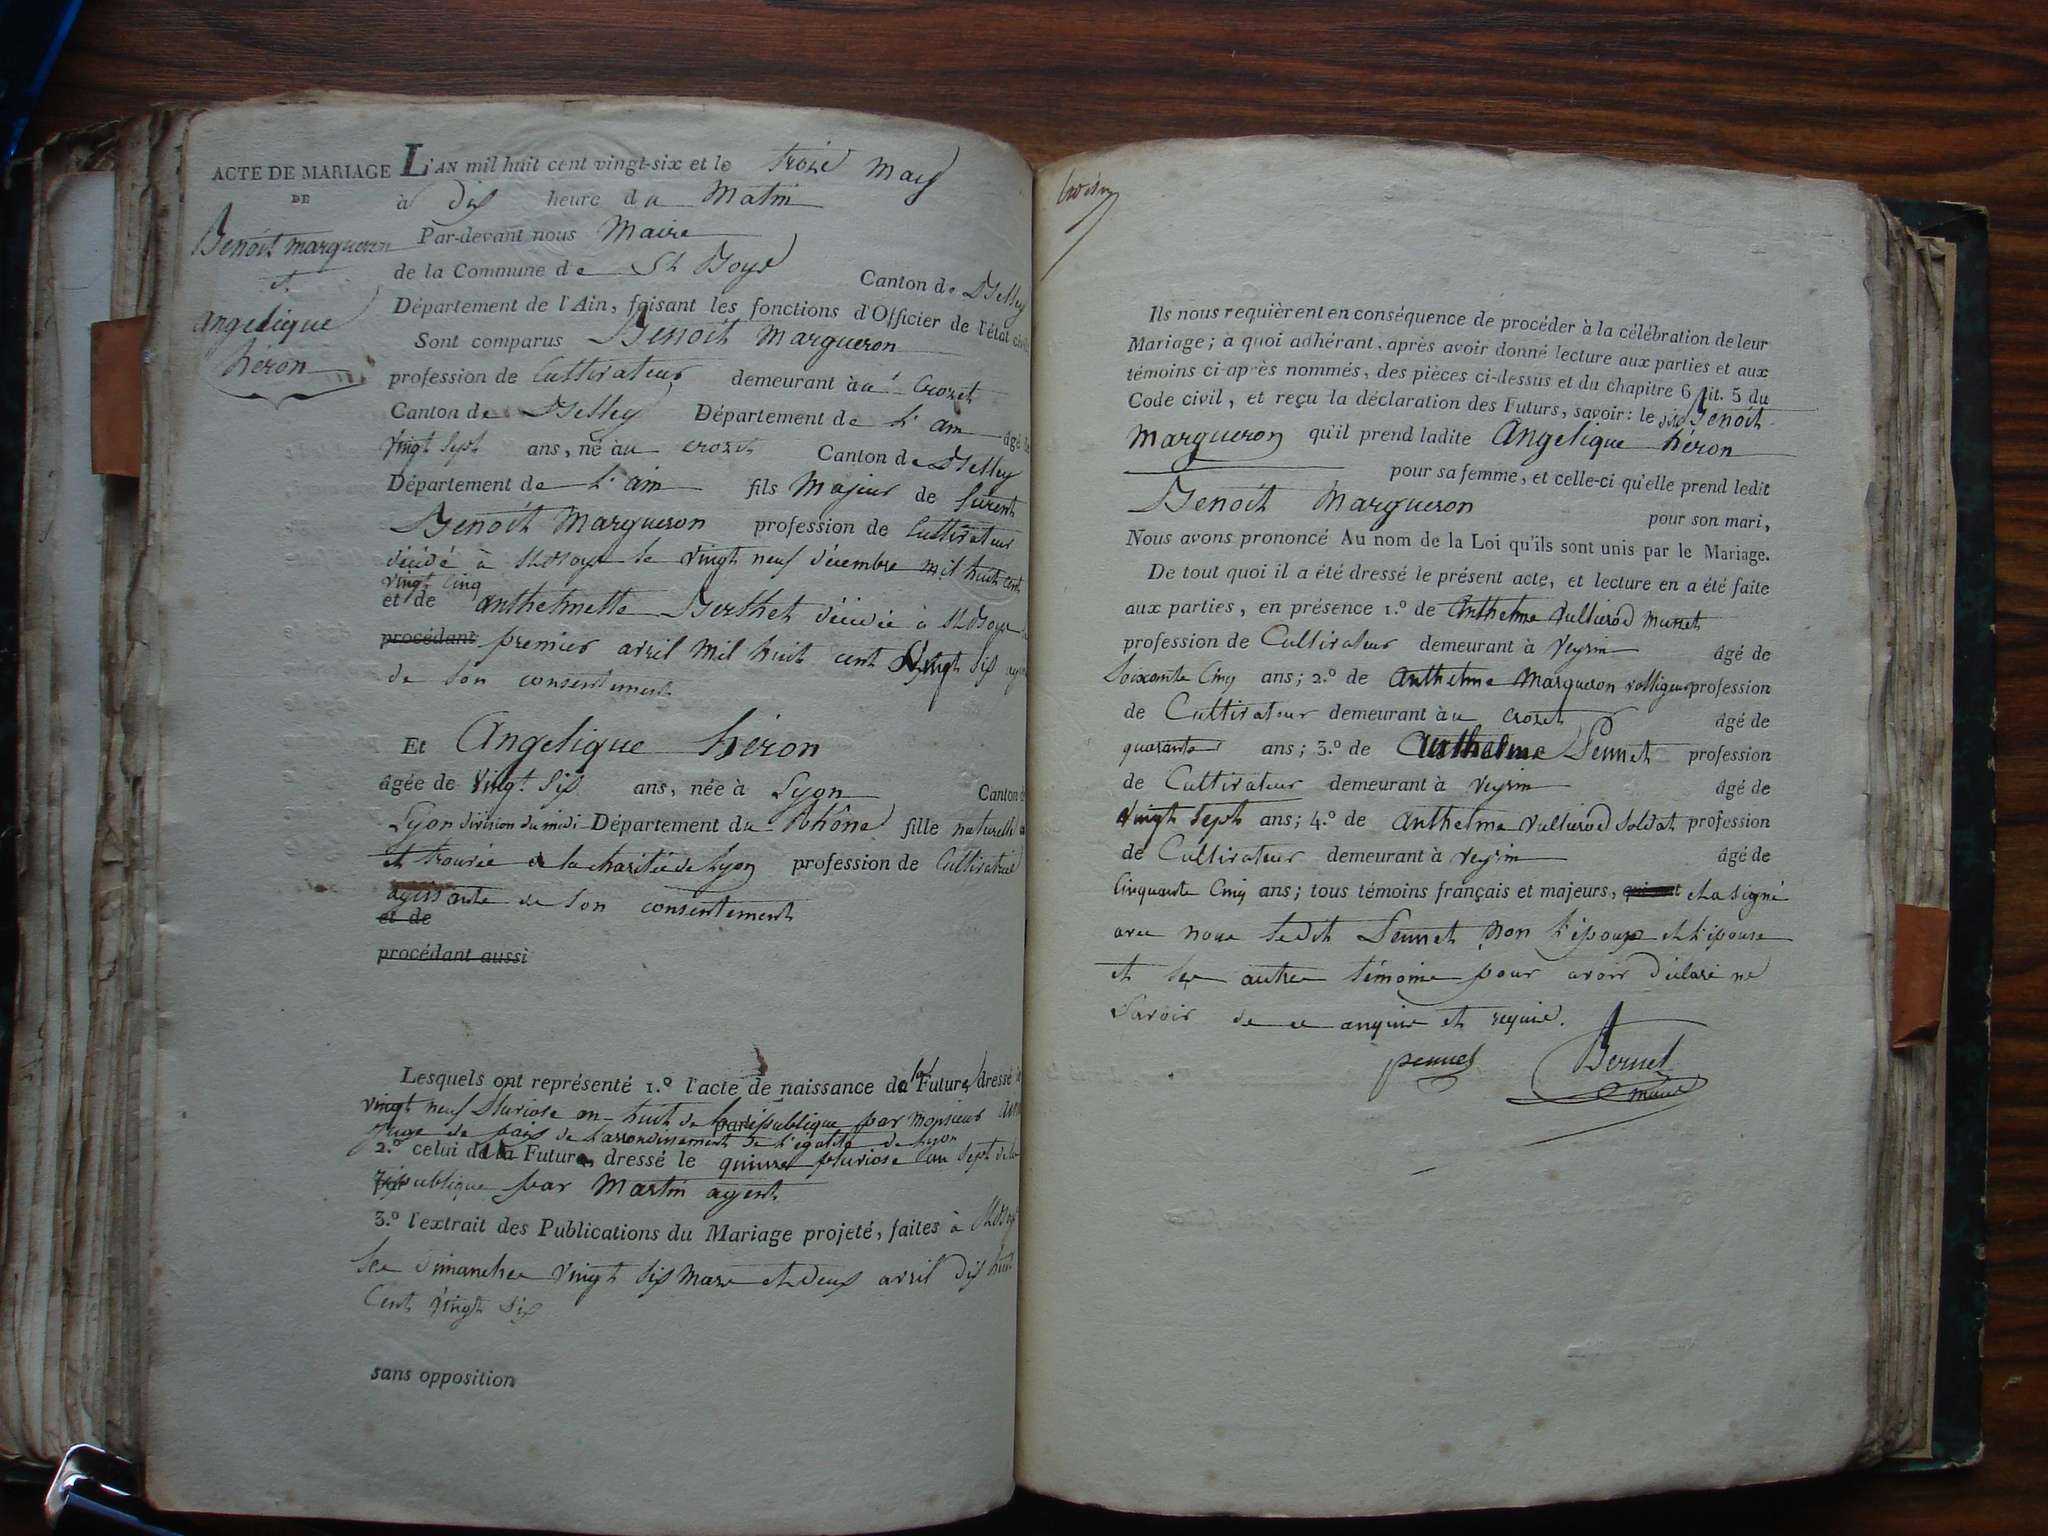 ACTE DE MARIAGE
DE
Benoit margueron
et
angelique
héron
L'AN mil huit cent vingt-six et le trois may
à dix heure du Matin
Par-devant nous Maire
de la Commune de St Boys Canton de Belley
Département de l'Ain, faisant les fonctions d'Officier de l'état civil
Sont comparus Benoit Margueron
profession de Cultivateur demeurant àu Crozet
Canton de Belley Département de L'ain âgé de
vingt sept ans, né àu crozet Canton de Belley
Département de L'ain fils Majeur de furent
Benoit Margueron profession de Cultivateur
décédé à St Boys le vingt neuf décembre mil huit cent
vingt cinq
et de anthelmette Berthet décédée à St Boys le
procédant premier avril mil huit cent vingt six
de son consentement
Et Angelique héron
âgée de vingt six ans, née à Lyon Canton de
Lyon division du midi Département du Rhône fille naturelle
et trouvée à la charitée de Lyon profession de Cultivatrice
agissante de son consentement
et de
procédant aussi
Lesquels ont représenté 1.º l'acte de naissance de la Future dressé le
vingt neuf pluviose an huit de la république par monsieur
par
juge de paix de l'arrondissement de l'égalité de Lyon
2.º celui de la Future, dressé le quinze pluviose an sept de la
république par Martin agent
3.º l'extrait des Publications du Mariage projeté, faites à St Boys
les dimanches vingt six mars et deux avril dix huit
Cent vingt six
sans opposition
Ils nous requièrent en conséquence de procéder à la célébration de leur
Mariage; à quoi adhérant, après avoir donné lecture aux parties et aux
témoins ci-après nommés, des pièces ci-dessus et du chapitre 6, tit. 5 du
Code civil, et reçu la déclaration des Futurs, savoir: le dit Benoit
Margueron qu'il prend ladite Angelique héron
pour sa femme, et celle-ci qu'elle prend ledit
Benoit Margueron pour son mari,
Nous avons prononcé Au nom de la Loi qu'ils sont unis par le Mariage.
De tout quoi il a été dressé le présent acte, et lecture en a été faite
aux parties, en présence 1.º de Anthelme Vullierod
profession de Cultivateur demeurant à Veyrin âgé de
Soixante Cinq ans; 2.º de Anthelme Margueron voltigeur profession
de Cultivateur demeurant àu crozet âgé de
quarante ans; 3.º de Anthelme Peunet profession
de Cultivateur demeurant à Veyrin âgé de
vingt sept ans; 4.º de anthelme Vullierod soldat profession
de Cultivateur demeurant à Veyrin âgé de
Cinquante Cinq ans; tous témoins français et majeurs, qui ont et a signé
avec nous ledit Peunet non l'époux et l'épouse
et les autres témoins pour avoir déclaré ne
savoir de ce enquis et requis.
peunet Bernet
maire